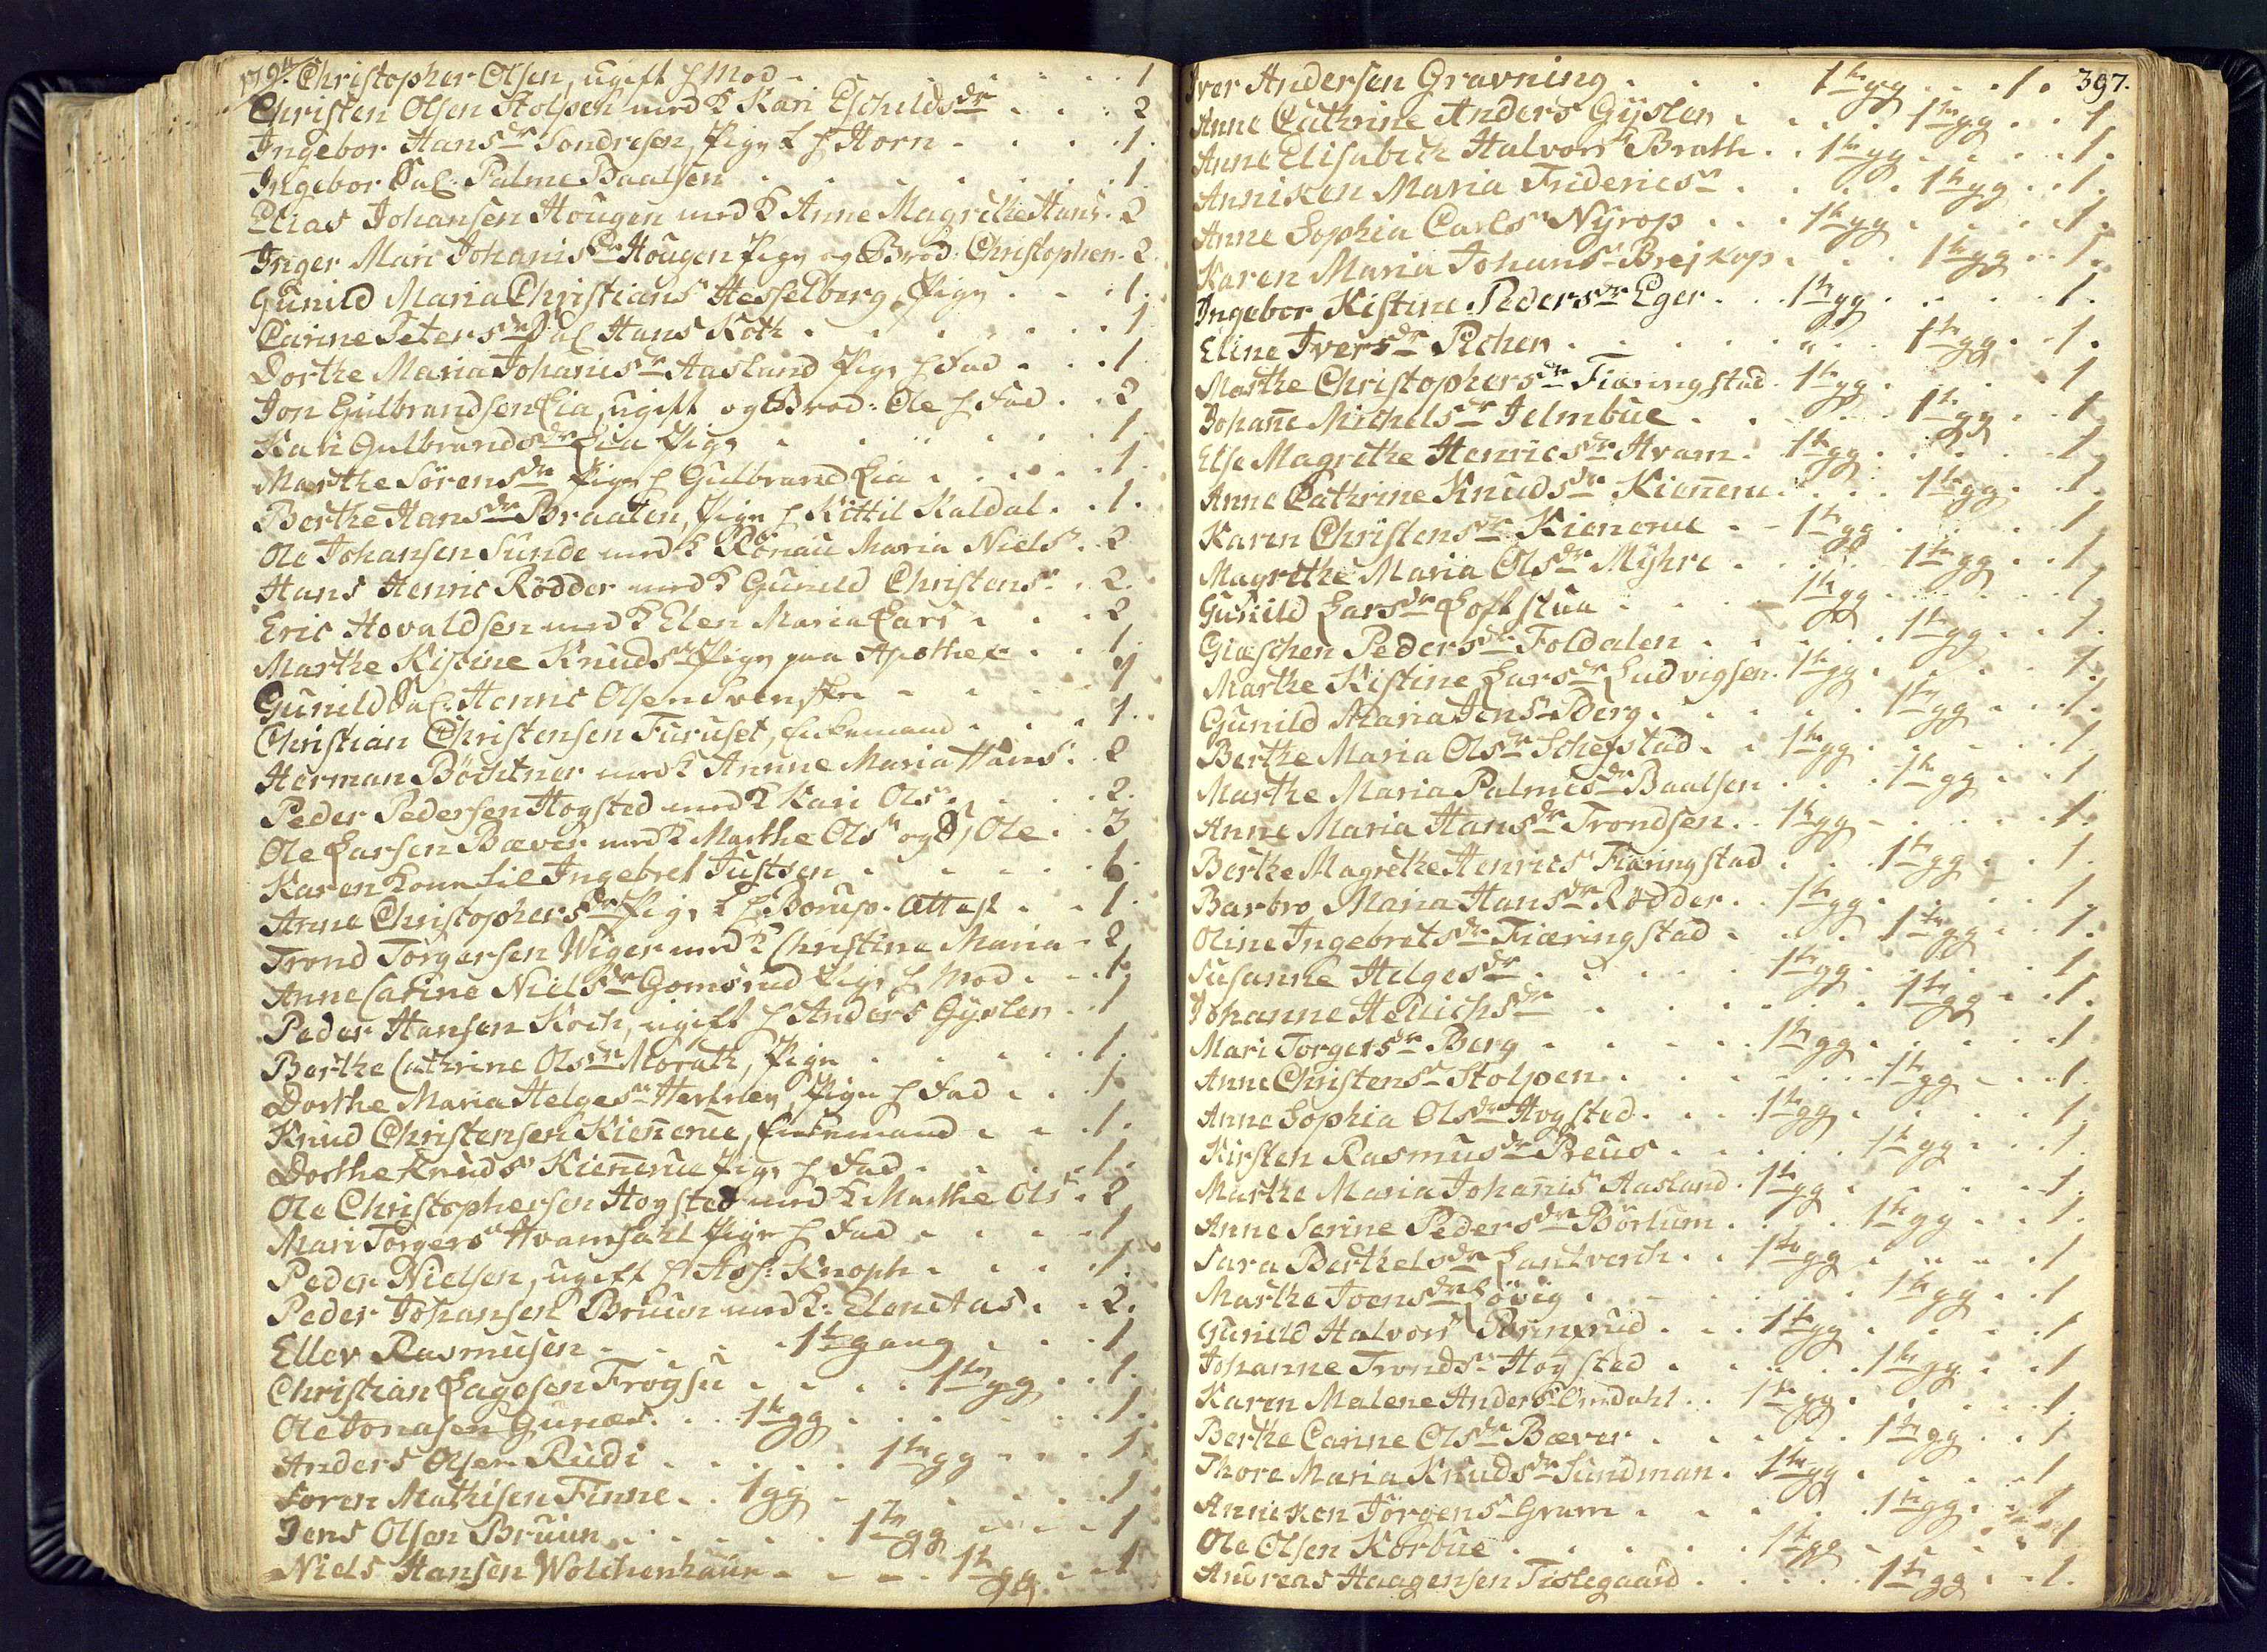 1794. Christopher Olsen, ugift h Mod 1
Christen Olsen Stolpen med K Kari Eschilds dr 2
Ingebor Hans dr Sondresen, Pige h Horn 1.
Ingebor Sal. Palme Baalsen 1.
Elias Johansen Hougen med K Anne Magrethe Hans. 2
Inger Mari Johanis dr Hougen Pige og Brod: Christopher. 2
Gunild Maria Christians Hesselberg, Pige 1.
Carine Peters dr Sal Hans Koth 1
Dorthe Maria Johanis dr Aasland Pige h Fad 1
Jon Gulbrandsen Lia, ugift og Brod: Ole h Fad 2
Kari Gulbrands dr Lia Pige 1.
Marthe Sörens dr Pige h Gulbrand Lia 1.
Berthe Hans dr Braaten, Pige h Kittil Kaldal 1.
Ole Johansen Sunde med K Rönau Maria Niels. 2
Hans Henric Rödder med K Gunild Christens 2.
Eric Hovaldsen med K Elen Maria Lars 2
Marthe Kistine Knuds dr Pige paa Apothek 1.
Gunild Sal. Henric Olsen Svenske 1
Christian Christensen Furuset, Enkemand 1.
Herman Böchtner med K Annne Maria Hans. 2
Peder Pedersen Hogsted med K Kari Ols 2.
Ole Larsen Bæver med K Marthe Ols og S. Ole 3
Karen Ingebret Justsen 1.
Anne Christophers dr Pige h Borup. Attest 1.
Trond Torgersen Wiger med K Christine Maria 2
Anne Carine Niels dr Gomsrud Pige h Mod 1.
Peder Hansen Koch, ugift h Anders Gyslen 1
Berthe Cathrine Ols dr Morath, Pige 1.
Dorthe Maria Helges Pige h Fad 1.
Knud Christensen Kiennerue, Enkemand 1.
Dorthe Knuds Kiennerue Pige h Fad 1.
Ole Christophersen Hogsted med K Marthe Ols. 2
Mari Torgers Hvamsahl Pige h Fad 1
Peder Nielsen, ugift h Hos: Knoph 1.
Peder Johansen Bruun med K: Elen Aas 2.
Ellev Rasmusen 1te gang 1
Christian Lagesen Frogsu 1te gg 1.
Ole Jonasen Gunæs 1te gg 1.
Anders Olsen Rudi 1te gg 1
Soren Mathisen Finne 1 gg 1
Jens Olsen Bruun 1te gg 1
Niels Hansen Wolchenhaur 1te gg 1
397.
Iver Andersen Gravning 1te gg 1.
Anne Cathrine Anders Gyslen 1te gg 1
Anne Elisabeth Halvors Brath 1te gg 1.
Anniken Maria Friderics 1te gg 1.
Anne Sophia Carls Nyrop 1te gg 1.
Karen Maria Johans Brejkop 1te gg 1.
Ingebor Kistine Peders dr Eger 1te gg 1.
Eline Ivers dr Pichen 1te gg 1.
Marthe Christophers dr Fiæringstad 1te gg 1
Johane Michels dr Jelmbue 1te gg 1.
Else Magrethe Henrics dr Hvam 1te gg 1.
Anne Cathrine Knuds dr Kiennerue 1te gg 1.
Karen Christens dr Kienerue 1te gg 1
Magrethe Maria Ols dr Myhre 1te gg 1.
Gunild Lars dr Loftstua 1te gg 1
Giæschen Peders dr Foldalen 1te gg 1.
Marthe Kistine Lars dr Ludvigsen 1te gg 1.
Gunild Maria Jens Berg 1te gg 1.
Berthe Maria Ols dr Schefstad 1te gg 1
Marthe Maria Palmes dr Baalsen 1te gg 1
Anne Maria Hans dr Trondsen 1te gg 1.
Berthe Magrethe Henrics Fiæringstad 1te gg 1.
Barbro Maria Hans dr Rödder 1te gg 1.
Oline Ingebrets dr Fiæringstad 1te gg 1.
Susanne Helges dr 1te gg 1.
Johanne Hellichs dr 1te gg 1.
Mari Torgers dr Berg 1te gg 1
Anne Christens Stolpen 1te gg 1.
Anne Sophia Ols dr Hogsted 1te gg 1
Kirsten Rasmus dr Preus 1te gg 1.
Marthe Maria Johanis Aasland 1te gg 1.
Anne Serine Peders dr Börtum 1te gg 1.
Sara Berthels dr Lantverch 1te gg 1
Marthe Ivens dr Lövig 1te gg 1
Gunild Halvors 1te gg 1
Johanne Tronds Höysted 1te gg 1
Karen Malene Anders Omdahl 1te gg 1.
Berthe Carine Ols dr Bæver 1te gg 1
Thore Maria Knuds dr Sundman 1te gg 1
Anneken Jörgens Gram 1te gg 1
Ole Olsen Korbue 1te gg 1
Andreas Haagensen Tislegaard 1te gg 1.